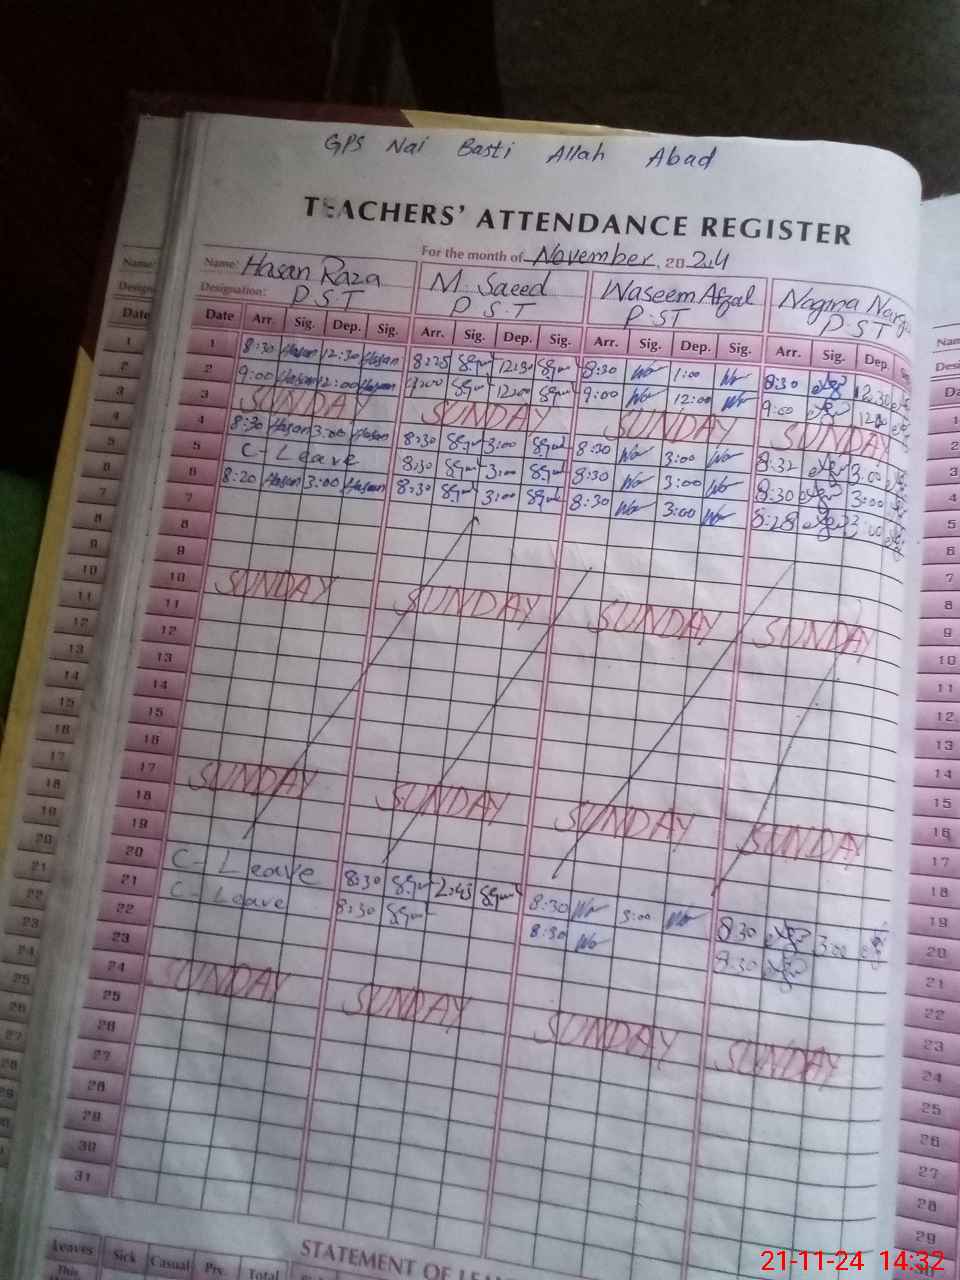 GPS Nai Basti Allah Abad
TEACHERS' ATTENDANCE REGISTER
For the month of November, 2024
Name: Hasan Raza M. Saeed Waseem Afzal Nagma
Designation: P.S.T P.S.T P.ST P.ST
Date Arr. Sig. Dep. Sig. Arr. Sig. Dep. Sig. Arr. Sig. Dep. Sig. Arr. Sig. Dep.
1 8:30 Hasan 12:30 Hasan 8:25 12:30 8:30 1:00 8:30 12:30
2 9:00 Hasan 12:00 Hasan 9:00 12:00 9:00 12:00 9:00 12:00
3 SUNDAY SUNDAY SUNDAY SUNDAY
4 8:30 Hasan 3:00 Hasan 8:30 3:00 8:30 3:00 8:32 3:00
5 C-Leave 8:30 3:00 8:30 3:00 8:30 3:00
6 8:20 Hasan 3:00 Hasan 8:30 3:00 8:30 3:00 8:28 3:00
7
8
9
10 SUNDAY SUNDAY SUNDAY SUNDAY
11
12
13
14
15
16
17 SUNDAY SUNDAY SUNDAY SUNDAY
18
19
20 C-Leave 8:30 2:45 8:30 3:00 8:30 3:00
21 C-Leave 8:30 8:30 8:30
22
23
24 SUNDAY SUNDAY SUNDAY SUNDAY
25
26
27
28
29
30
31
STATEMENT OF
Leaves Sick Casual Prv. Total
This
21-11-24 14:32